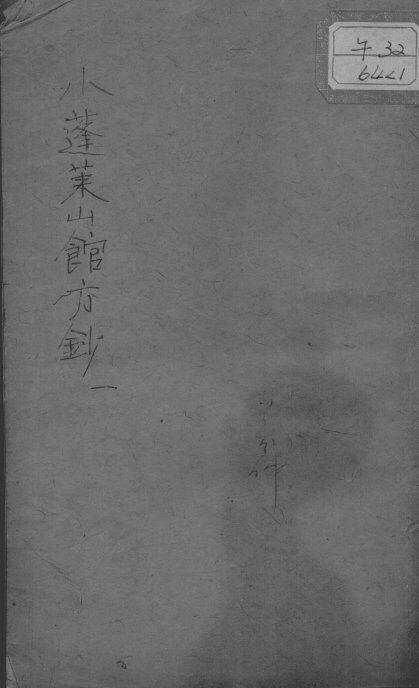 小蓬莱山館方鈔 一
午32
6441